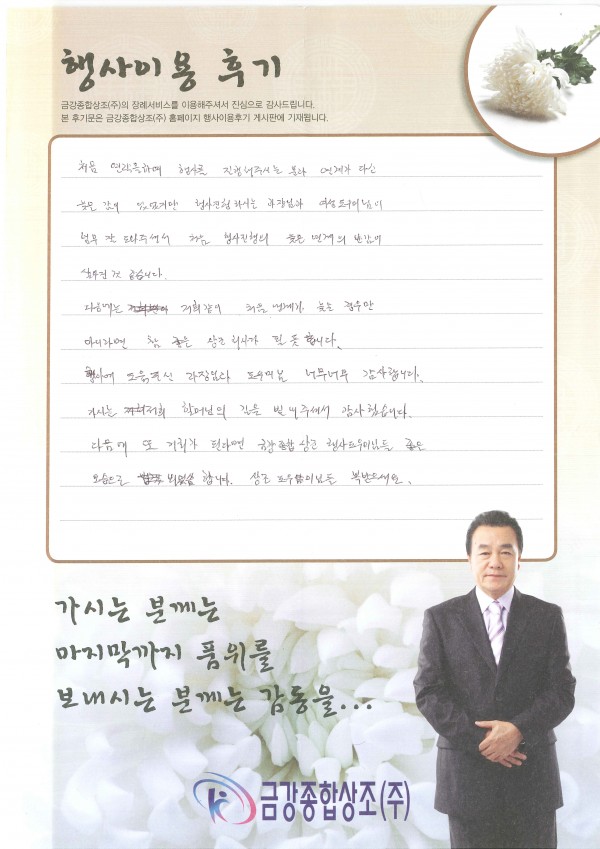 행사이용 후기
금강종합상조(주)의 장례서비스를 이용해주셔서 진심으로 감사드립니다.
본 후기문은 금강종합상조(주) 홈페이지 행사이용후기 게시판에 기재됩니다.
처음 연락측하에 행사로 진행해주시는 분과 연계가 다신
늦은 감이 있었지만 행사진행하시는 과장님과 여성도우미님이
너무 잘 도와주셔서 처음 행사진행의 늦은 연계의 반감이
상쇄된것 같습니다.
다음에는 저희같이 처음 연계가 늦는 경우만
아니라면 참 좋은 상조회사가 될 듯 합니다.
행사에 도움주신 과장님과 도우미님 너무너무 감사합니다.
가시는 저희 할머님의 길을 빛내주셔서 감사했습니다.
다음에 또 기회가 된다면 금강종합상조 행사도우미님들 좋은
모습으로 뵈었음 합니다. 상조 도우미님들 복받으세요.
가시는 분께는
마지막까지 품위를
보내시는 분께는 감동을...
금강종합상조(주)